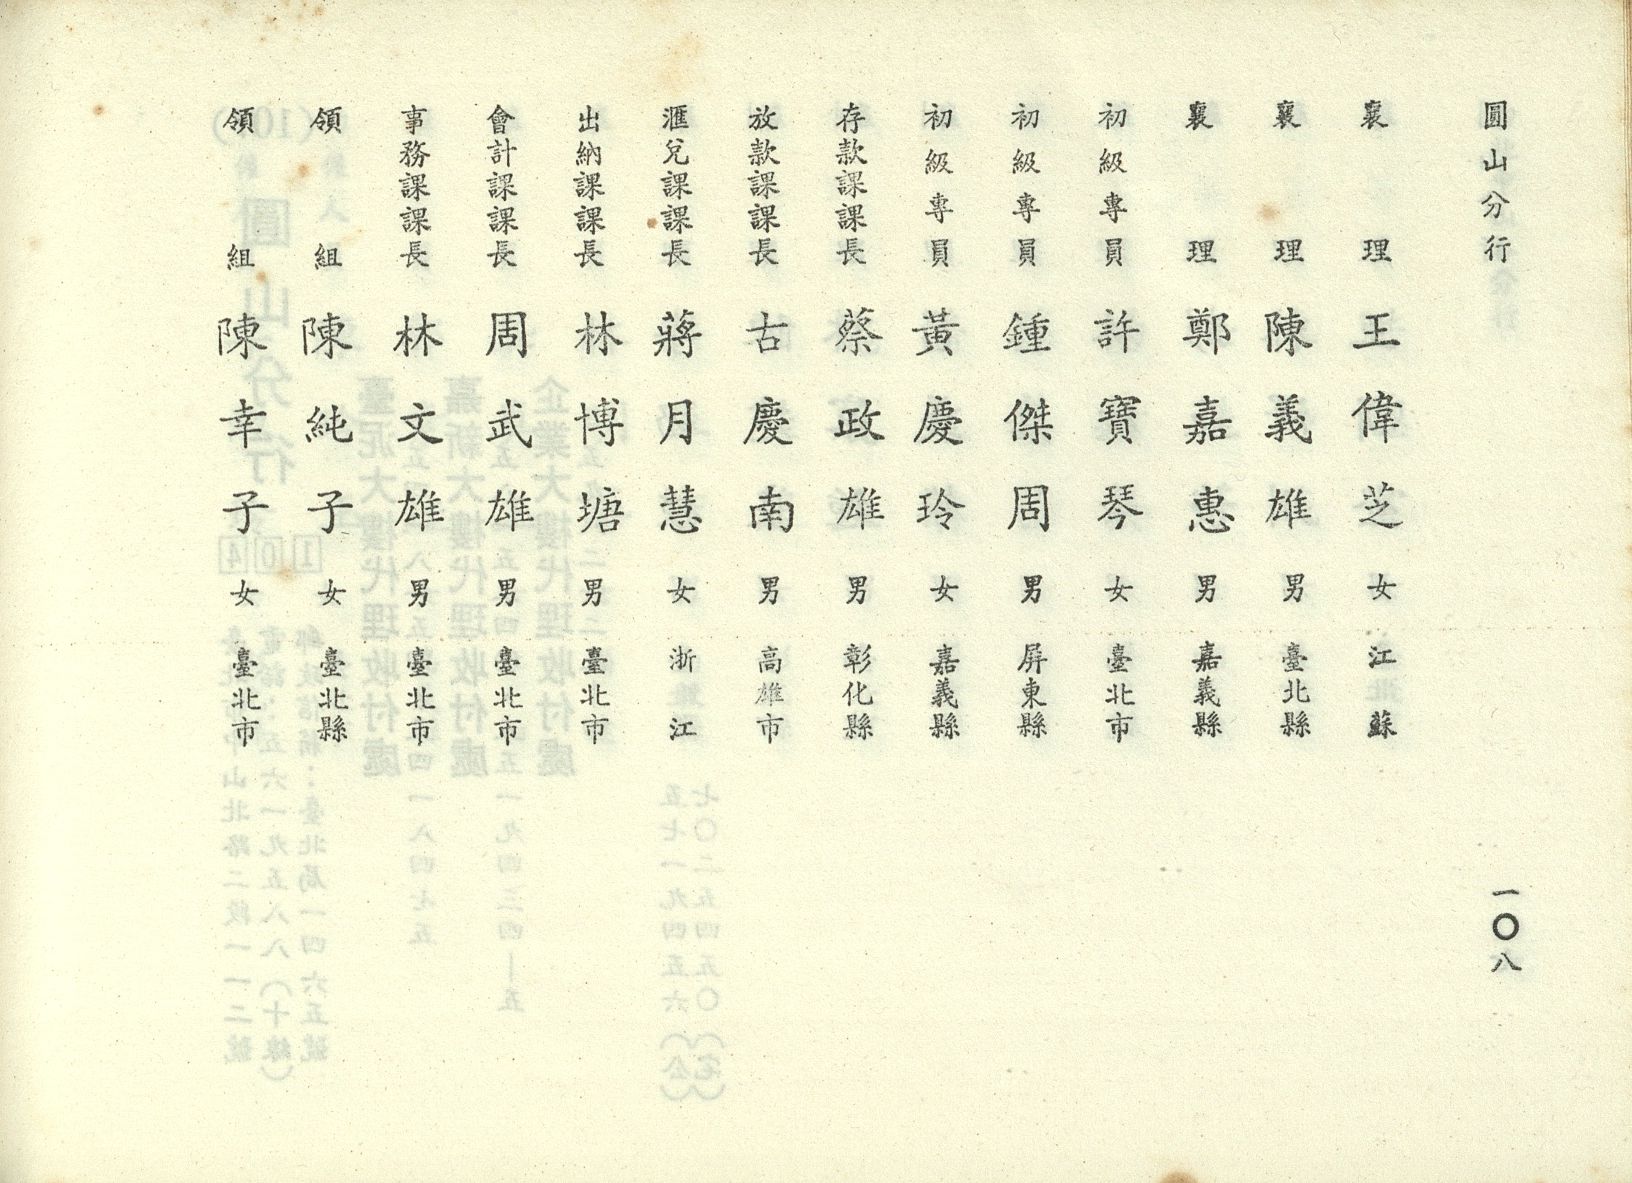 圓山分行
襄理 王偉芝 女 江蘇
襄理 陳義雄 男 臺北縣
襄理 鄭嘉惠 男 嘉義縣
初級專員 許寶琴 女 臺北市
初級專員 鍾傑周 男 屏東縣
初級專員 黃慶玲 女 嘉義縣
存款課課長 蔡政雄 男 彰化縣
放款課課長 古慶南 男 高雄市
滙兌課課長 蔣月慧 女 浙江
出納課課長 林博塘 男 臺北市
會計課課長 周武雄 男 臺北市
事務課課長 林文雄 男 臺北市
領組 陳純子 女 臺北縣
領組 陳幸子 女 臺北市
一〇八